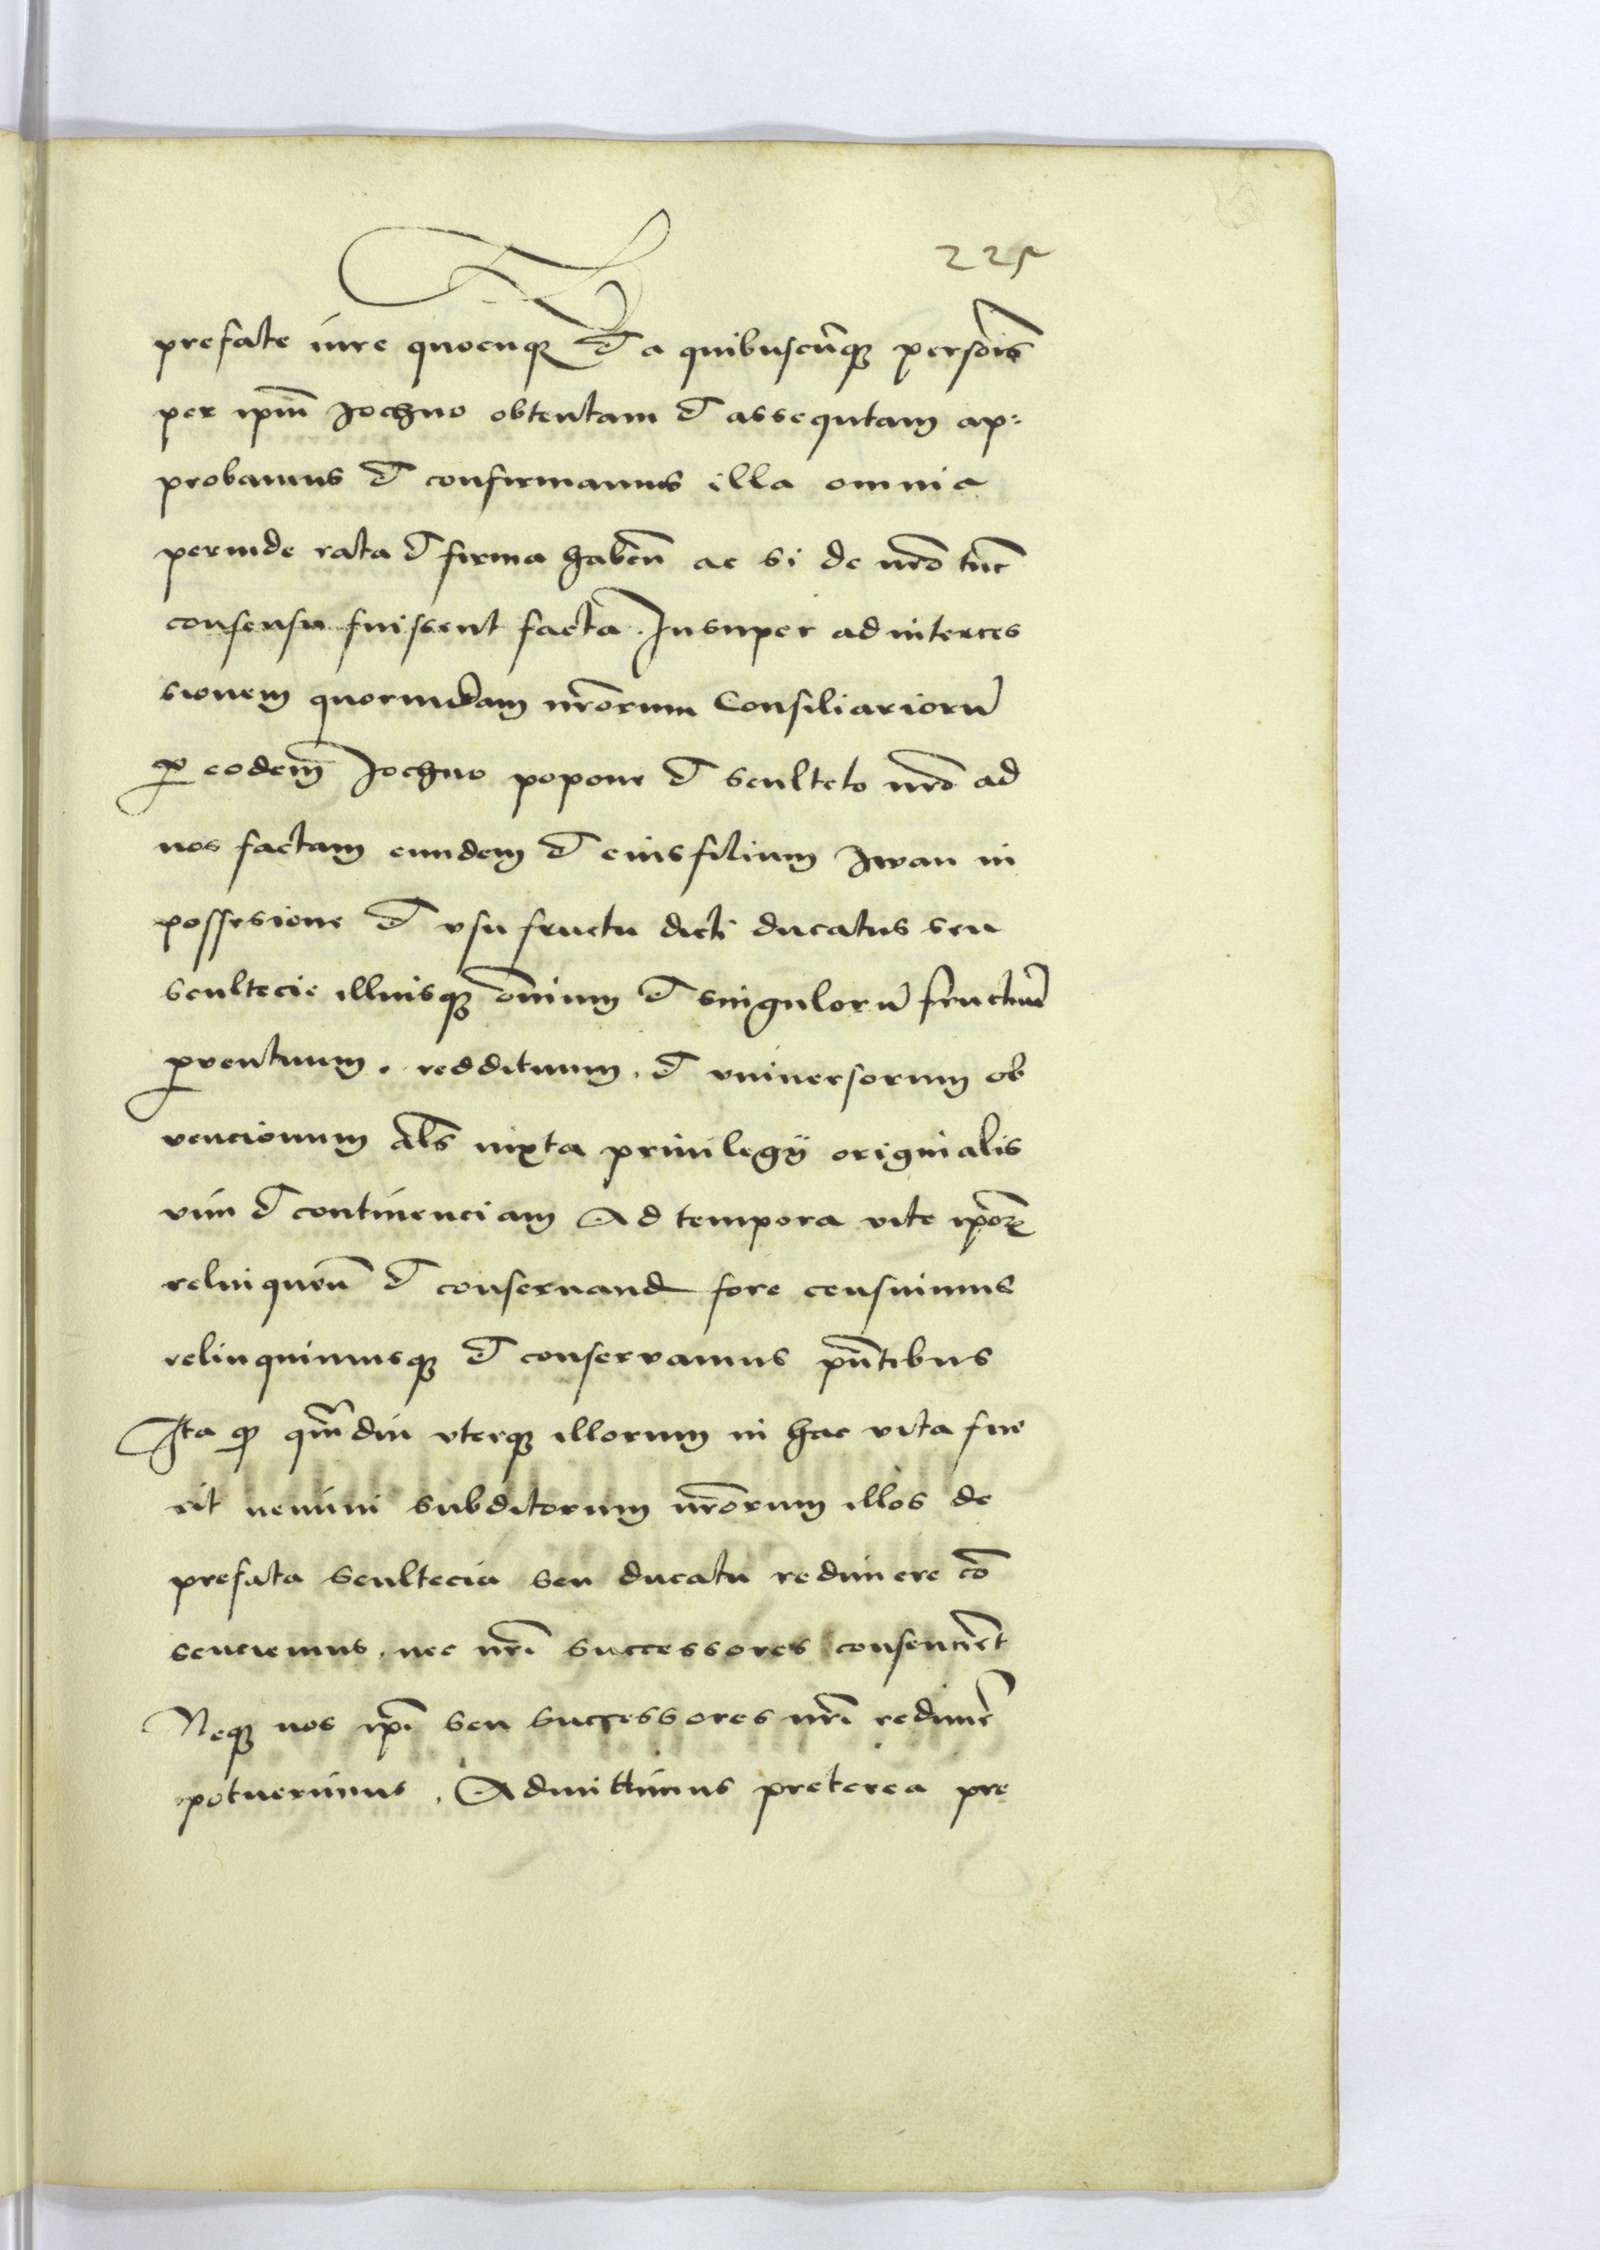 225
prefate iure quocunq̨ et a quibuscu̅q̨ perso̅is
per ip̅m Jochno obtentam et assequtam ap⸗
probamus et confirmamus illa omnia
perinde rata et firma habeñ ac si de nr̅o tu̅c
consensu fuissent facta. Insuper ad interces
sionem quorundam nr̅orum Consiliarioru̅
ꝓ eodem̅ Jochno popone et sculteto nr̅o ad
nos factam eundem et eius filium Iwan in
possesione et vsufructu dicti ducatus seu
scultecie illiusq̨ om̅ium et singuloru̅ fructuu̅
ꝓventuum. reddituum. et vniuersorum ob
vencionum al̅s iuxta priuilegÿ originalis
vim et continenciam Ad tempora vite ip̅oꝝ
relinqueñ et conseruand fore censuimus
relinquimusq̨ et conservamus pn̅tibus
Ita ꝙ qm̅diu vterq̨ illorum in hac vita fue
rit nemini subditorum nr̅orum illos de
prefata scultecia seu ducatu redimere co̅
senciemus. nec nr̅i successores consencie̅t
Neq̨ nos ip̅i seu successores nr̅i redimer̅
potuerimus. Admittimus preterea pre